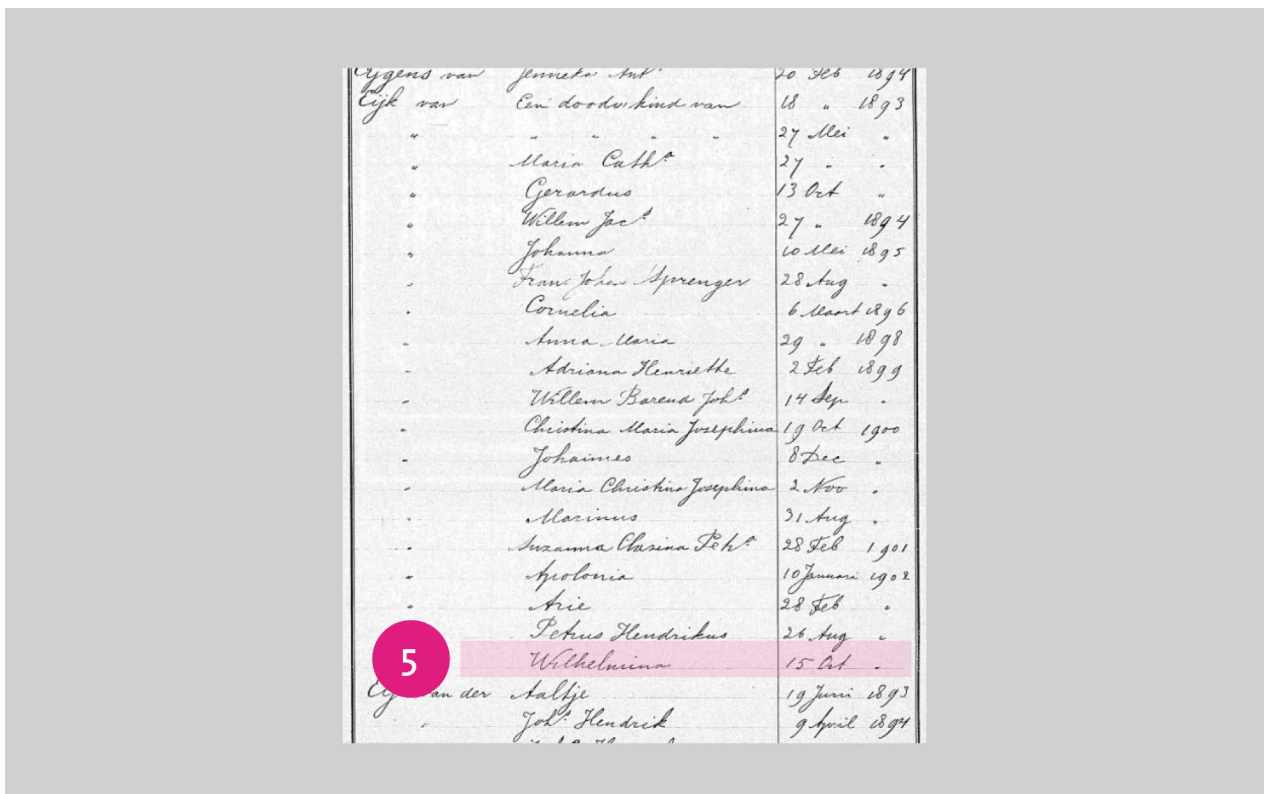 Eijgens van Jenneke Ant.ª 20 Feb 1894
Eijk van Een doodv. kind van 18 „ 1893
„ „ „ „ „ 27 Mei „
„ Maria Cath.ª 27 „ „
„ Gerardus 13 Oct „
„ Willem Jac.s 27 „ 1894
„ Johanna 10 Mei 1895
„ Frans Johan Sprenger 28 Aug „
„ Cornelia 6 Maart 1896
„ Anna Maria 29 „ 1898
„ Adriana Henriette 2 Feb 1899
„ Willem Barend Joh.s 14 Sep „
„ Christina Maria Josephina 19 Oct 1900
„ Johannes 8 Dec „
„ Maria Christina Josephina 2 Nov „
„ Marinus 31 Aug „
„ Suzanna Clasina Pet.ª 28 Feb 1901
„ Apolonia 10 Januari 1902
„ Arie 28 Feb „
Petrus Hendrikus 26 Aug „
5 Wilhelmina 15 Oct „
van der Aaltje 19 Juni 1893
„ Joh.s Hendrik 9 April 1894